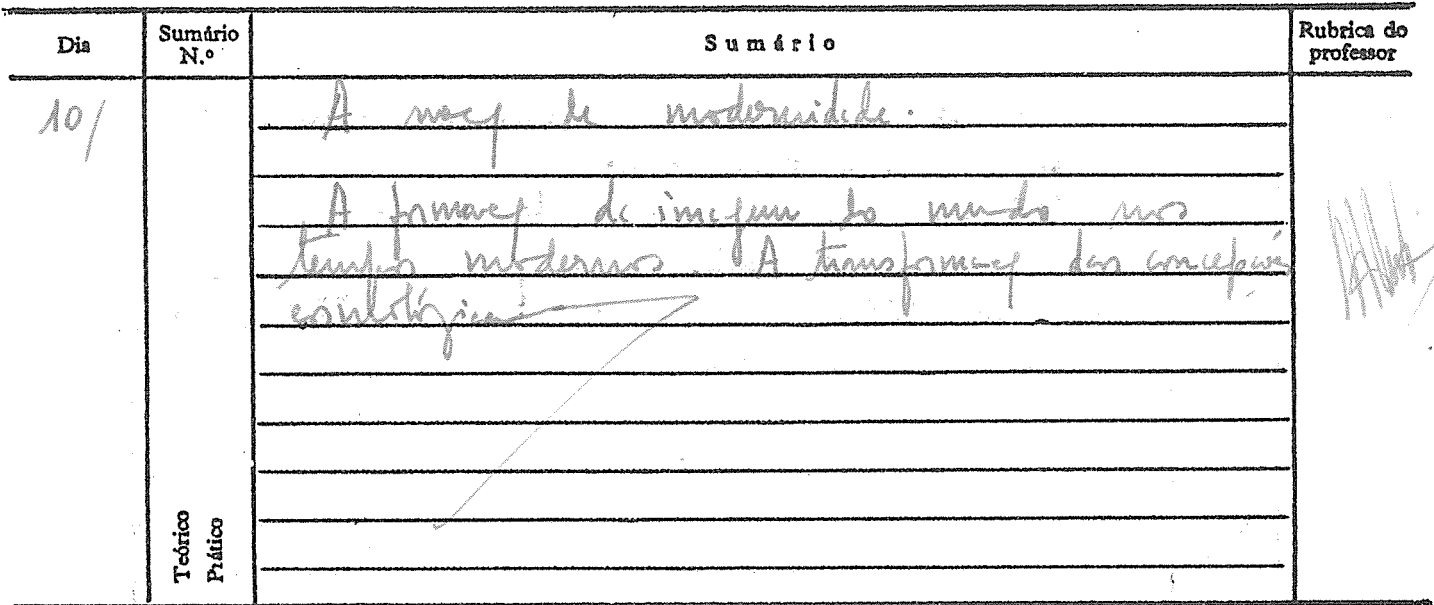 Dia
Sumário N.º
Sumário
Rubrica do professor
10/
A noção de modernidade.
A formação da imagem do mundo nos
tempos modernos. A transformação das concepções
cosmológicas
Teórico
Prático